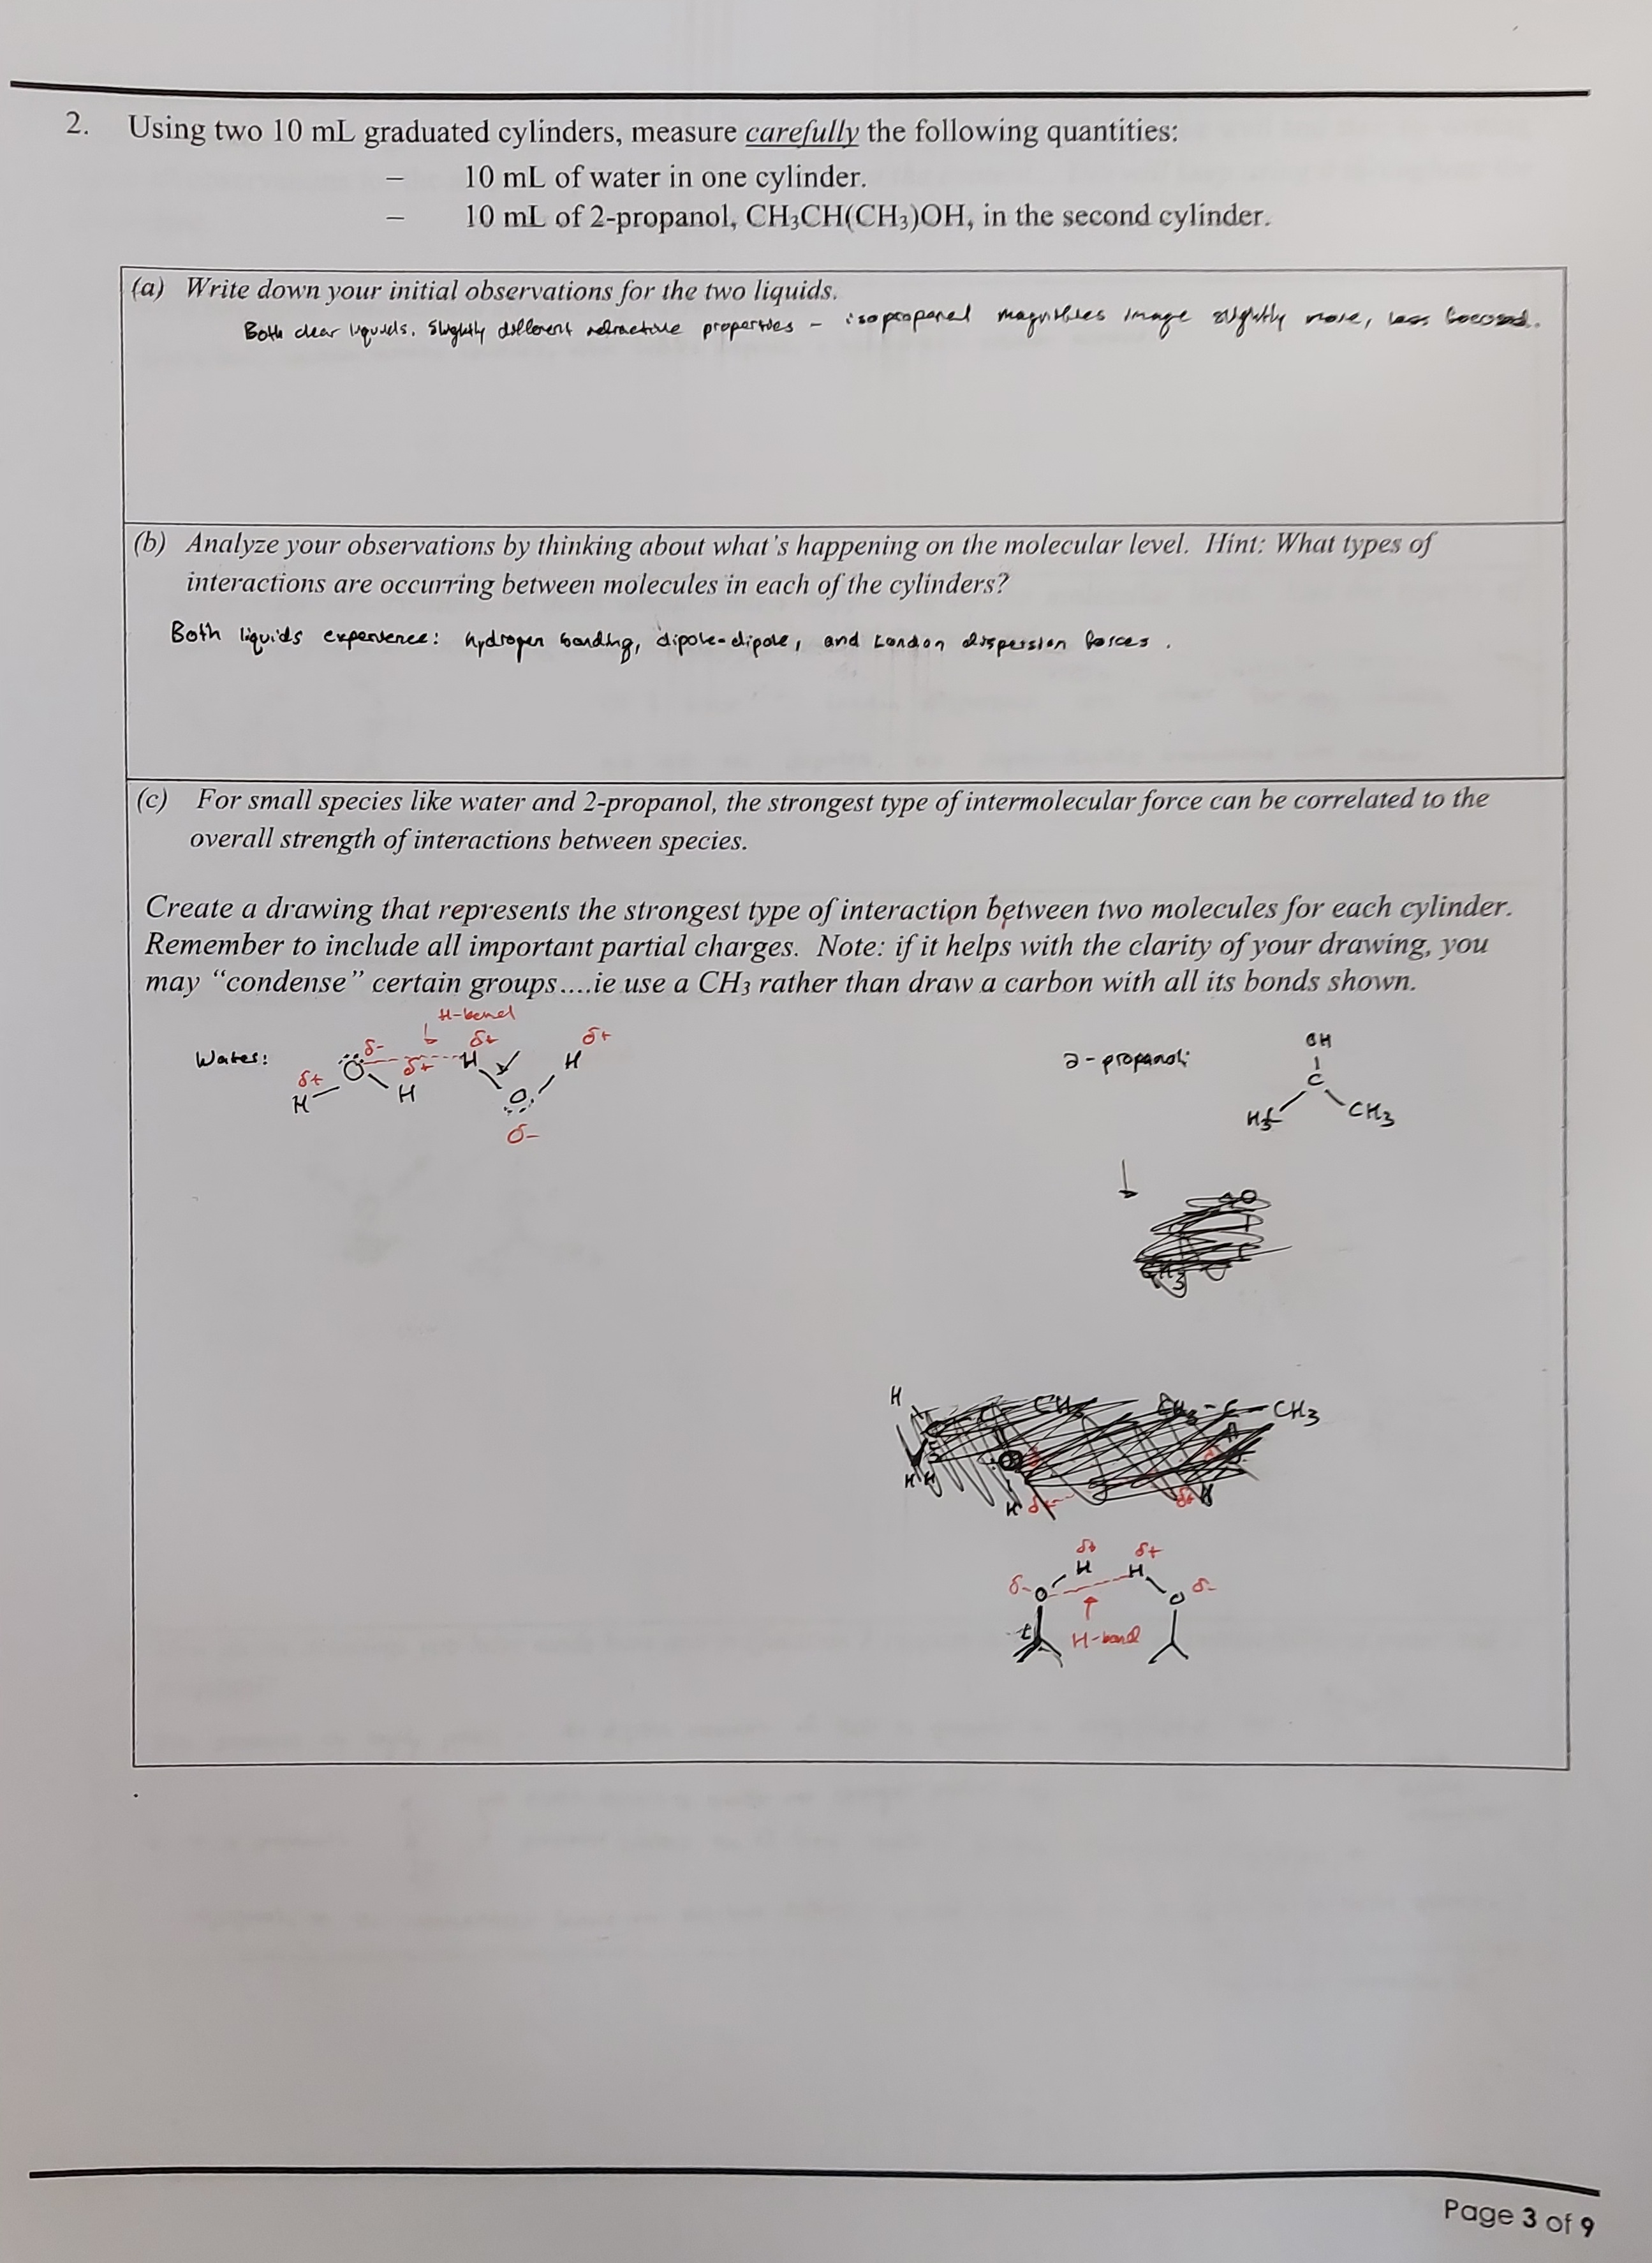 2. Using two 10 mL graduated cylinders, measure carefully the following quantities:
– 10 mL of water in one cylinder.
– 10 mL of 2-propanol, CH₃CH(CH₃)OH, in the second cylinder.
(a) Write down your initial observations for the two liquids.
Both clear liquids. Slightly different refractive properties – isopropanol magnifies image slightly more, less focused.
(b) Analyze your observations by thinking about what's happening on the molecular level. Hint: What types of
interactions are occurring between molecules in each of the cylinders?
Both liquids experience: hydrogen bonding, dipole-dipole, and London dispersion forces.
(c) For small species like water and 2-propanol, the strongest type of intermolecular force can be correlated to the
overall strength of interactions between species.
Create a drawing that represents the strongest type of interaction between two molecules for each cylinder.
Remember to include all important partial charges. Note: if it helps with the clarity of your drawing, you
may “condense” certain groups….ie use a CH₃ rather than draw a carbon with all its bonds shown.
H-bond
Water:
δ+ H O δ- δ+ H
δ+ H O δ- H δ+
2-propanol:
OH
C
H₃C CH₃
H
CH₃ CH₃-C-CH₃
H H
H δ+ δ+ H
δ+ δ+
H H
δ- O O δ-
H-bond
Page 3 of 9